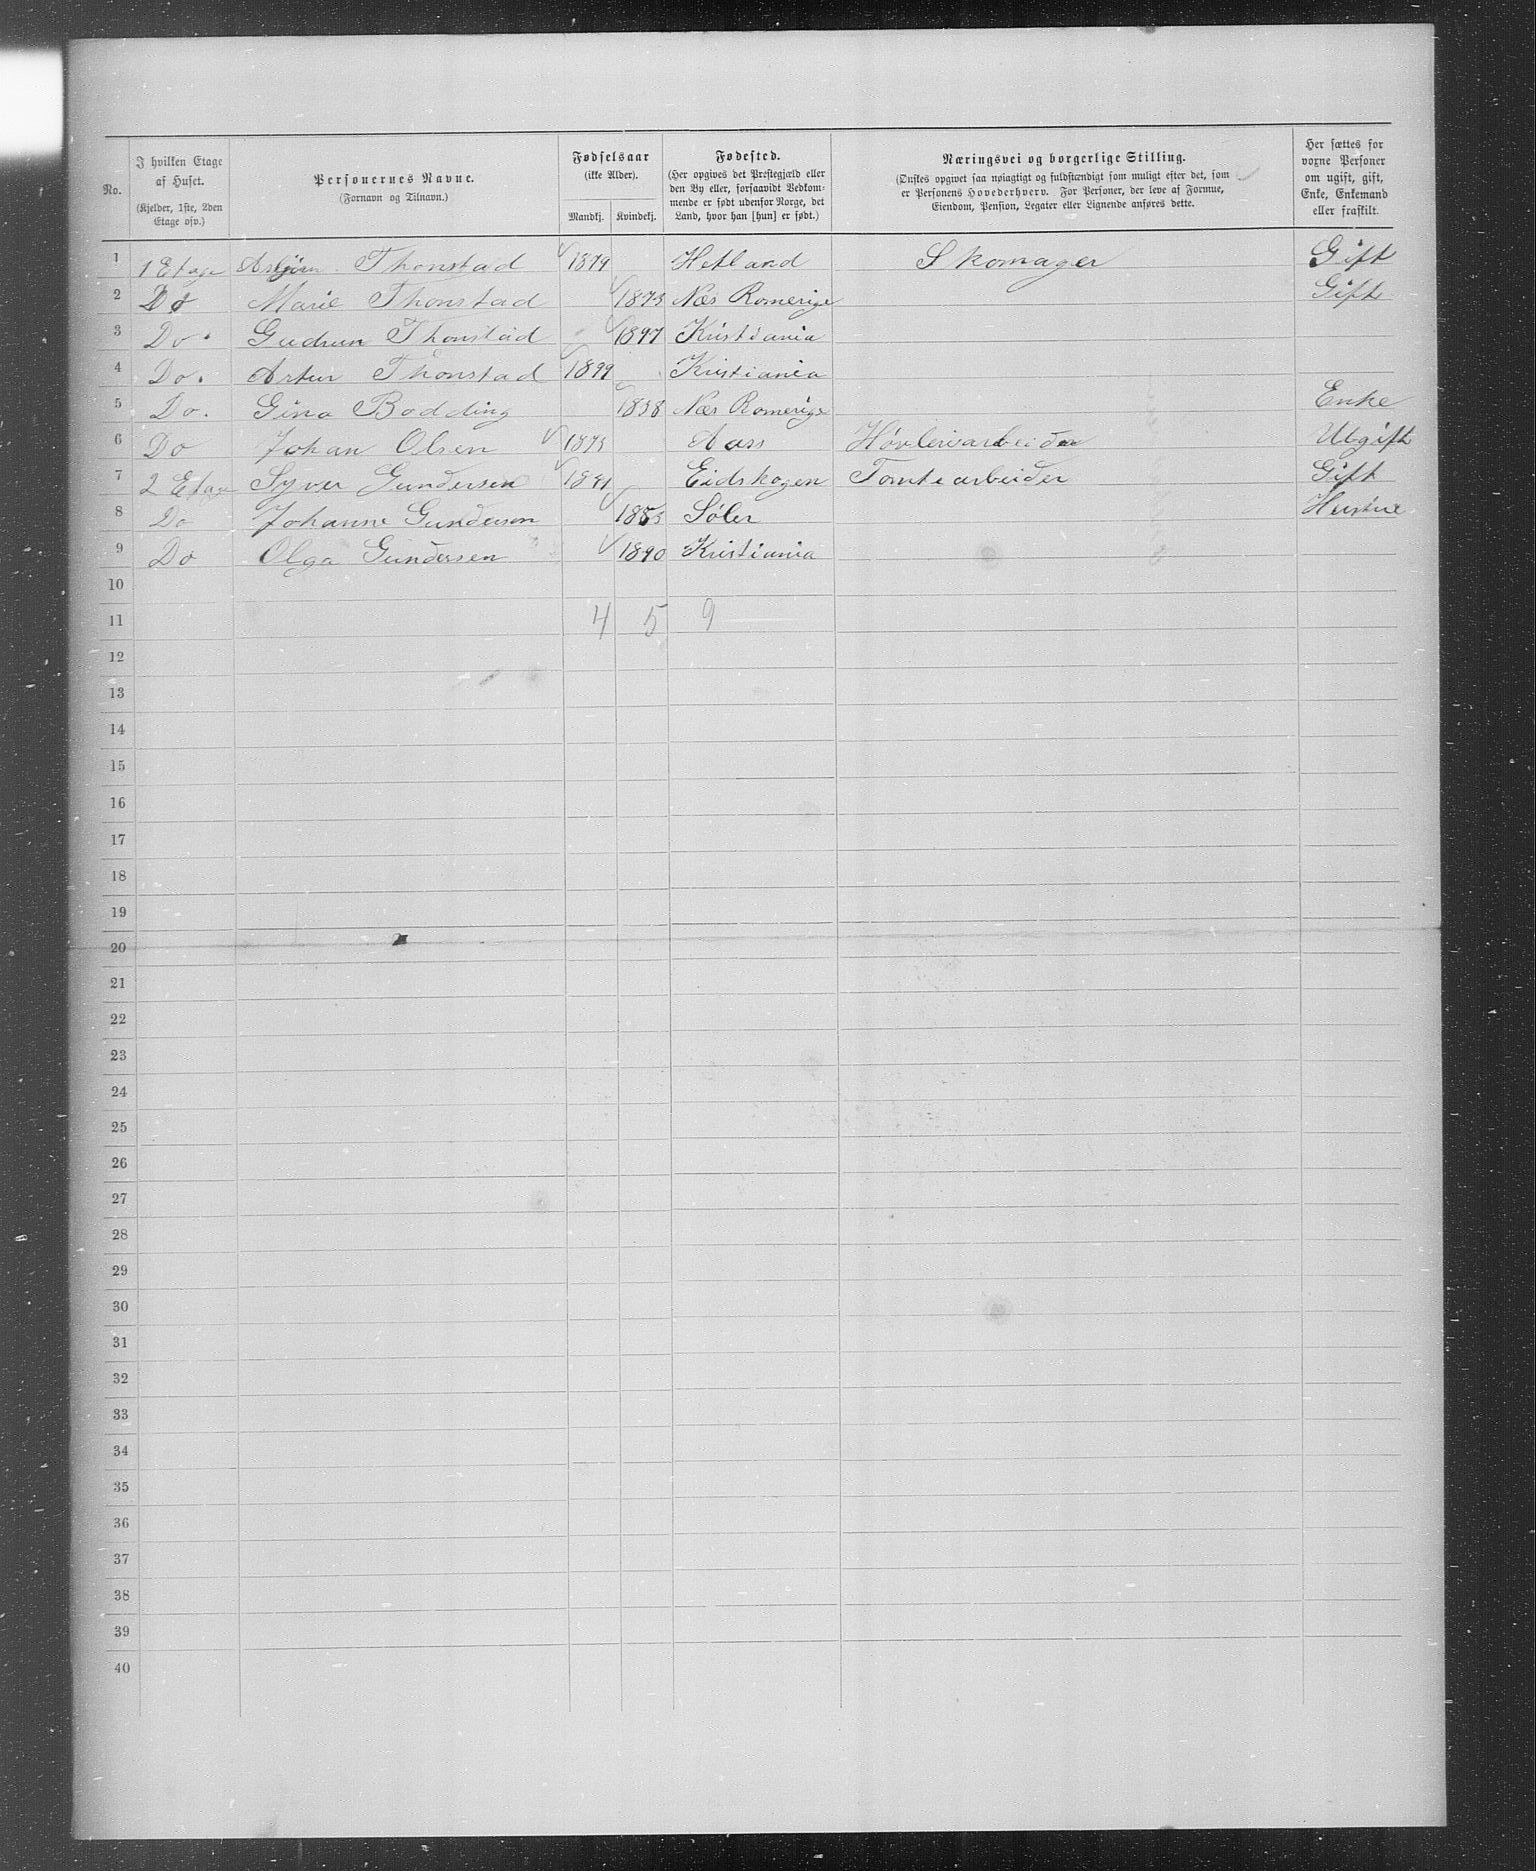 No.
I hvilken Etage af Huset.
(Kjelder, 1ste, 2den Etage osv.)
Personernes Navne.
(Fornavn og Tilnavn.)
Fødselsaar
(ikke Alder).
Mandkj. Kvindekj.
Fødested.
(Her opgives det Prestegjæld eller
den By eller, forsaavidt Vedkom-
mende er født udenfor Norge, det
Land, hvor han [hun] er født.)
Næringsvei og borgerlige Stilling.
(Ønskes opgivet saa nøiagtigt og fuldstændigt som muligt efter det, som
er Personens Hovederhverv. For Personer, der leve af Formue,
Eiendom, Pension, Legater eller Lignende anføres dette.
Her sættes for
voxne Personer
om ugift, gift,
Enke, Enkemand
eller fraskilt.
1 1 Etage Asbjørn Thonstad 1879 Hetland Skomager Gift
2 Do Marie Thonstad 1873 Næs Romerige Gift
3 Do. Gudrun Thonstad 1897 Kristiania
4 Do. Artur Thonstad 1899 Kristiania
5 Do. Gina Bodding 1838 Næs Romerige Enke
6 Do Johan Olsen 1873 Aass Høvleriarbeider Ubgift
7 2 Etage Syver Gundersen 1881 Eidskogen Tomtearbeider Gift
8 Do Johanne Gundersen Søler Hustru
9 Do Olga Gundersen 1890 Kristiania
10
11 4 5 9
12
13
14
15
16
17
18
19
20
21
22
23
24
25
26
27
28
29
30
31
32
33
34
35
36
37
38
39
40